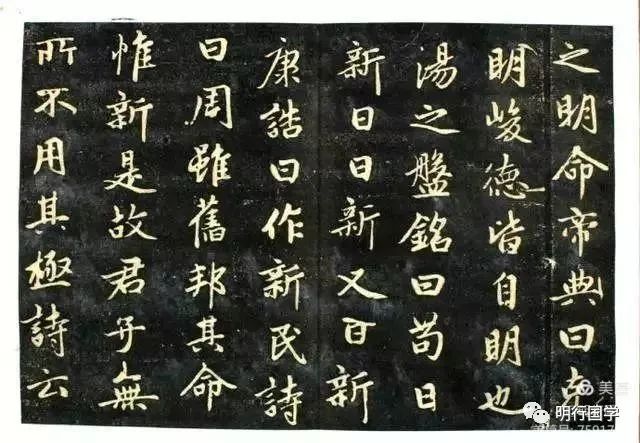 之明命帝典曰克
明峻德皆自明也
湯之盤銘曰苟日
新日日新又日新
康誥曰作新民詩
曰周雖舊邦其命
惟新是故君子無
所不用其極詩云
明行国学